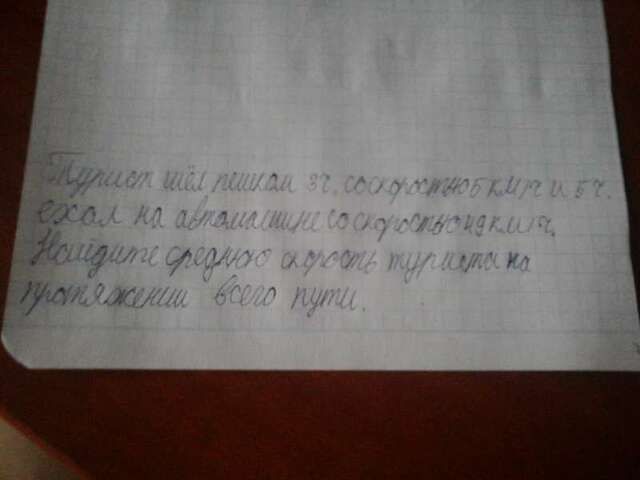 Турист шёл пешком 3ч, со скоростью 6 км/ч и 5ч.
ехал на автомашине со скоростью км/ч,
Найдите среднюю скорость туриста на
протяжении всего пути.